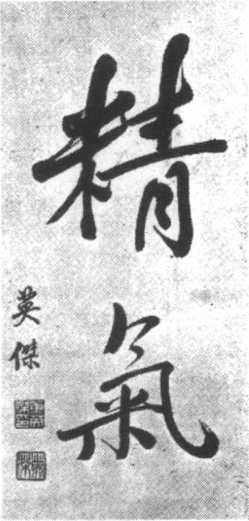 精氣
英傑